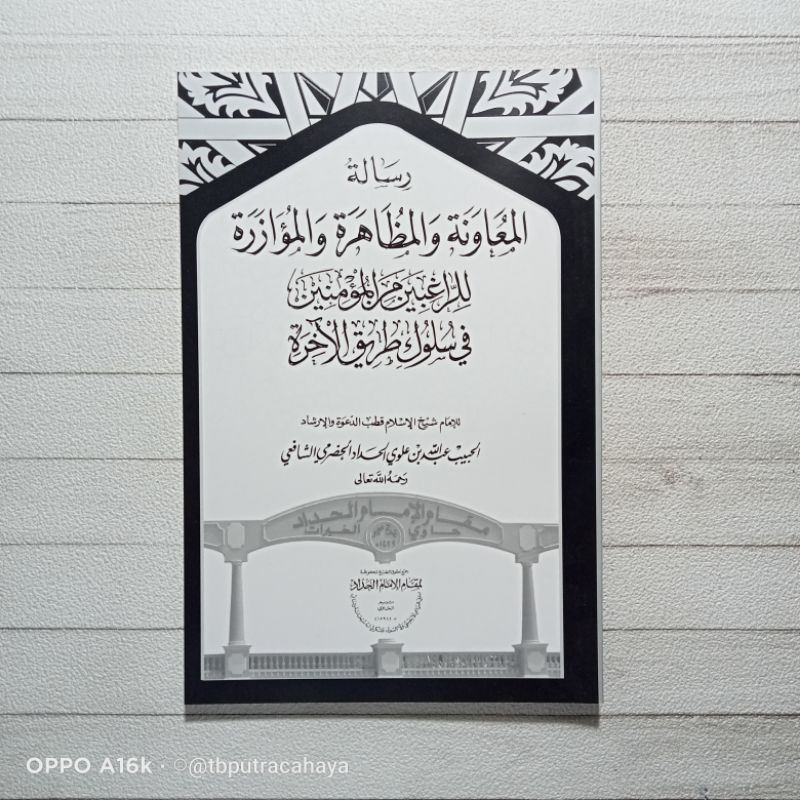 رِسَالةُ
المُعَاوَنَة وَالمُظَاهَرَة وَالمُؤَازَرَة
لِلرَّاغِبِينَ مِنَ المُؤْمِنِينَ
فِي سُلُوكِ طَرِيقِ الْآخِرَةِ
للإمام شيخ الإسلام قطب الدعوة والإرشاد
الحبيب عبد الله بن علوي الحداد الحضرمي الشافعي
رحمه الله تعالى
مقام الإمام الحداد
حاوي الخيرات
جميع حقوق الطبع محفوظة
لمقام الإمام الحداد
OPPO A16k · @tbputracahaya